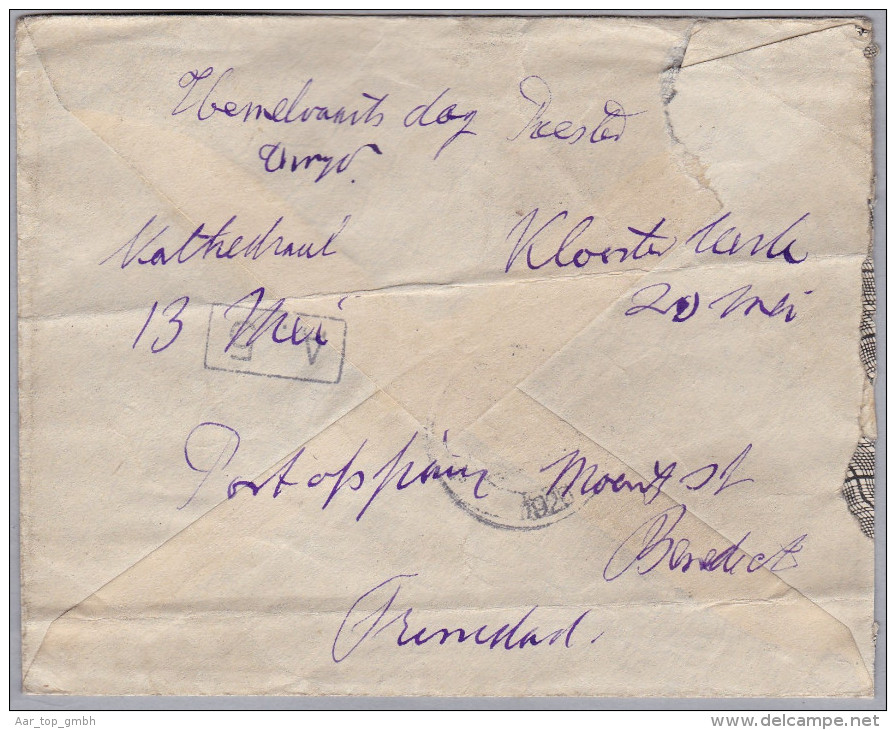 Hemelvaarts dag Preester
Kathedraal Klooster kerk
13 Mei 20 Mei
A. B
Port of spain Mount St
1926
Benedict
Trinidad.
Aar_top_gmbh
www.delcampe.net